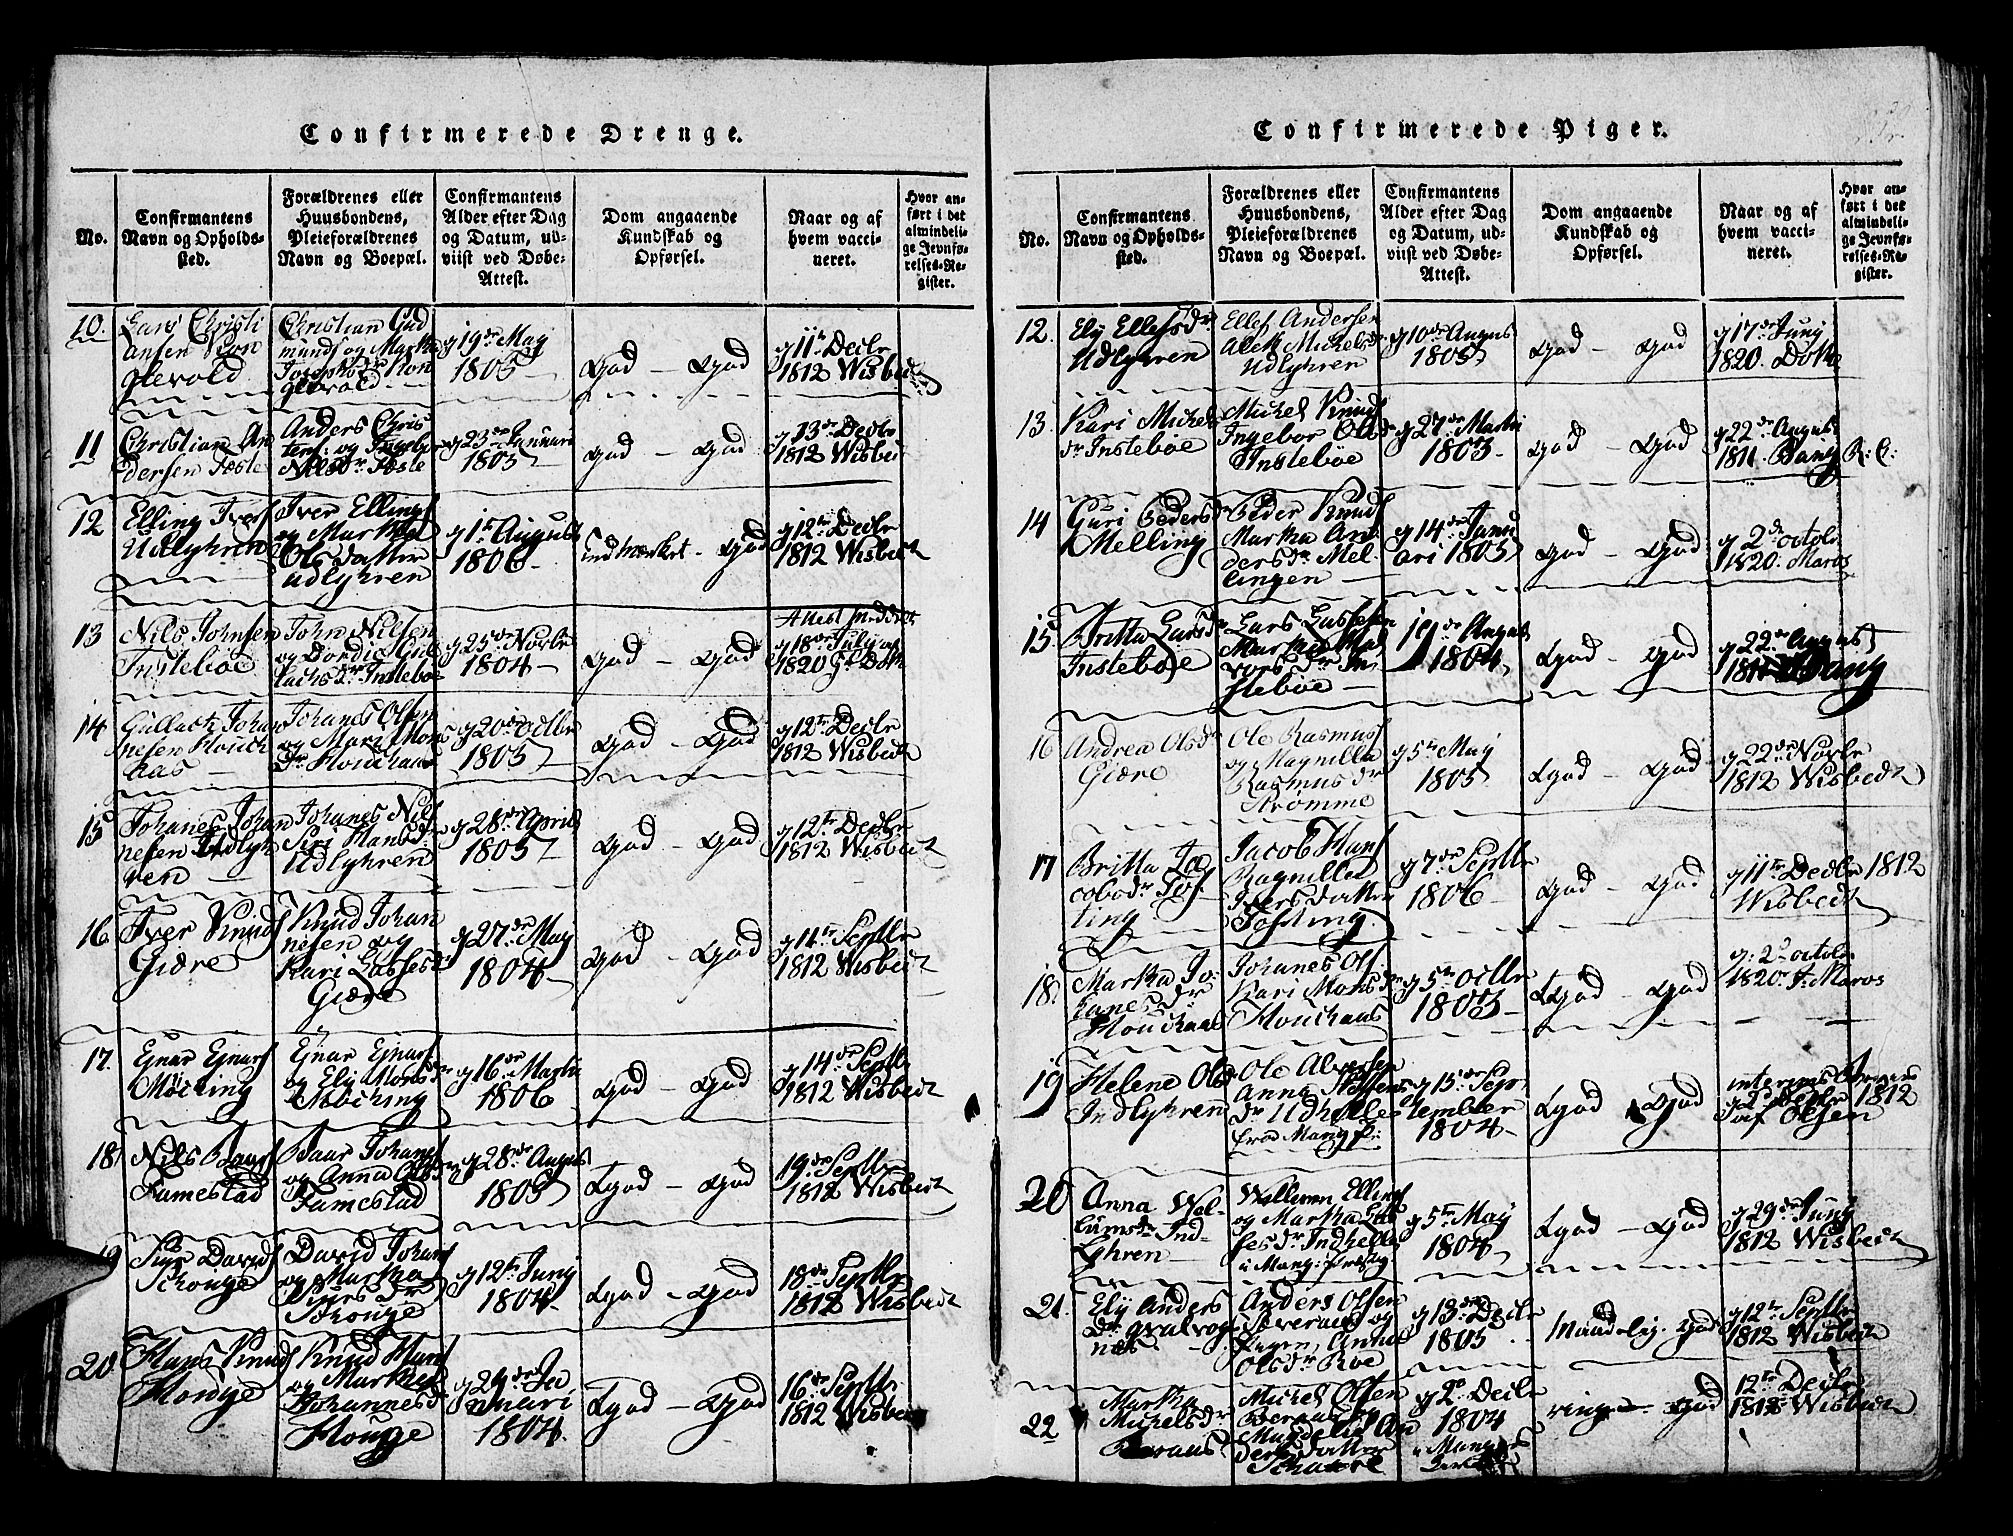 Confirmerede Drenge.
No.
Confirmantens
Navn og Opholds-
sted.
Forældrenes eller
Huusbondens,
Pleieforældrenes
Navn og Boepæl.
Confirmantens
Alder efter Dag
og Datum, ud-
viist ved Døbe-
Attest.
Dom angaaende
Kundskab og
Opførsel.
Naar og af
hvem vacci-
neret.
Hvor an-
ført i det
almindeli-
ge Jevnfø-
relses-Re-
gister.
10.
Lars Christi
ansen Kon
glevold
Christian Gud
munds og Martha
Josephsdr Kon
glevold
g 19de May
1805
God - God
g 11te Decbr
1812 Wisbedt
11
Christian An
dersen Toste
Anders Chris
tens: og Ingebor
Nilsdr Toste
g 23de Januari
1805
God - God
g 13de Decbr
1812 Wisbedt
12
Elling Ivers
Udlyhren
Iver Ellings
og Martha
Ols Datter
Udlyhren
g 1te August
1806
udmærket - God
g 12te Decbr
1812 Wisbedt
13
Nils Johnsen
Instebøe
John Nilsen
og Dordie Gul
lachsdr Instebøe
g 25de Novbr
1804
God - God
Attest meddelt
g 18de July
1820 Dothe
14
Gullach Johan
nesen Houch
aas
Johans Olsen
og Mari Mons
dr Houchaas
g 20de octbr
1805
God - God
g 12te Decbr
1812 Wisbedt
15
Johanes Johan
nesen Udlyh
ren
Johanes Nils
Siri Hansdr
Udlyhren
g 28de April
1805
God - God
g 12te Decbr
1812 Wisbedt
16
Iver Knuds
Giære
Knud Johan
nesen og
Kari Lassesdr
Giære
g 27de May
1804
God - God
g 11te Septbr
1812 Wisbedt
17.
Ejnar Ejnars
Møching
Ejnar Ejnars
og Ely Monsdr
Møching
g 16de Martii
1806
God - God
g 14de Septbr
1812 Wisbedt
18
Nils Baars
Famestad
Baar Johans
og Anna Olsdr
Famestad
g 28de August
1805
God - God
19de Septbr
1812 Wisbedt
19
Davids
David Johans
og Martha
g 12te Juny
1804
God - God
18de Septbr
1812 Wisbedt
20
Hans Knuds
Houge
Knud Hans
og Martha
Johannesdr
Houge
g 24de Ja
nuari
1804.
God - God
16de Septbr
1812 Wisbedt
Confirmerede Piger.
No.
Confirmantens
Navn og Opholds-
sted.
Forældrenes eller
Huusbondens,
Pleieforældrenes
Navn og Boepæl.
Confirmantens
Alder efter Dag
og Datum, ud-
viist ved Døbe-
Attest.
Dom angaaende
Kundskab og
Opførsel.
Naar og af
hvem vacci-
neret.
Hvor an-
ført i det
almindeli-
ge Jevnfø-
relses-Re-
gister.
12.
Ely Ellefsdr
Udlyhren
Ellef Andersen
Alet Michelsdr
Udlyhren
g 10de August
1805
God - God
g 17de Juny
1820. Dothe
13.
Kari Michels
dr Instebøe
Michel Knuds
Ingebor Olsdr
Instebøe
g 27de Martii
1803
God - God
g 22de August
1811 Bang R: C:
14
Guri Peders dr
Melling
Peder Knuds
Martha An
dersdr Mel
lingen
g 14de Janu
ari 1805
God - God
g 2de octobr
1820. Maros
15
Britta Larsdr
Instebøe
Lars Lassesen
Martha Hal
vorsdr In
stebøe
19de August
1804
God - God
g 22de August
1811 Bang
16
Andrea Olsdr
Giære
Ole Rasmus
og Magnilla
Rasmusdr
Strømme
g 5te May
1805
God - God
g 22de Novbr
1812 Wisbedt
17
Britta Ja
cobsdr Tof
ting
Jacob Hans
Ragnilla
Iversdatter
Tofting
g 7de Septbr
1806
God - God
g 11te Decbr 1812
Wisbedt
18.
Martha Jo
hanesdr
Houchaas
Johanes Ols
Kari Monsdr
Houchaas
g 5te octbr
1805
God - God
g: 2de octobr
1820. J. Maros
19
Helene Olsdr
Indlyhren
Ole
Anna
dr Udhelle
fra Mang
g 15de Sep
tember
1804
God - God
interims
g 2de Decbr 1812
Olsen
20
Anna Wil
lumsdr Ind
lyhren
Willum Ellings
og Martha Las
sesdr Indhelle
i Mang:
g 5te May
1804
God - God
g 29de Juny
1812 Wisbedt
21.
Ely Anders
dr
Anders Olsen
og
Anna
Olsdr Roe
g 13de Decbr
1805
Maadelig. God
g 12te Septbr
1812 Wisbedt
22
Martha
Michelsdr
Michel Olsen
og
Magdeli An
dersdatter
g 2de Decbr
1804
ringe - God
12te Decbr
1812 Wisbedt